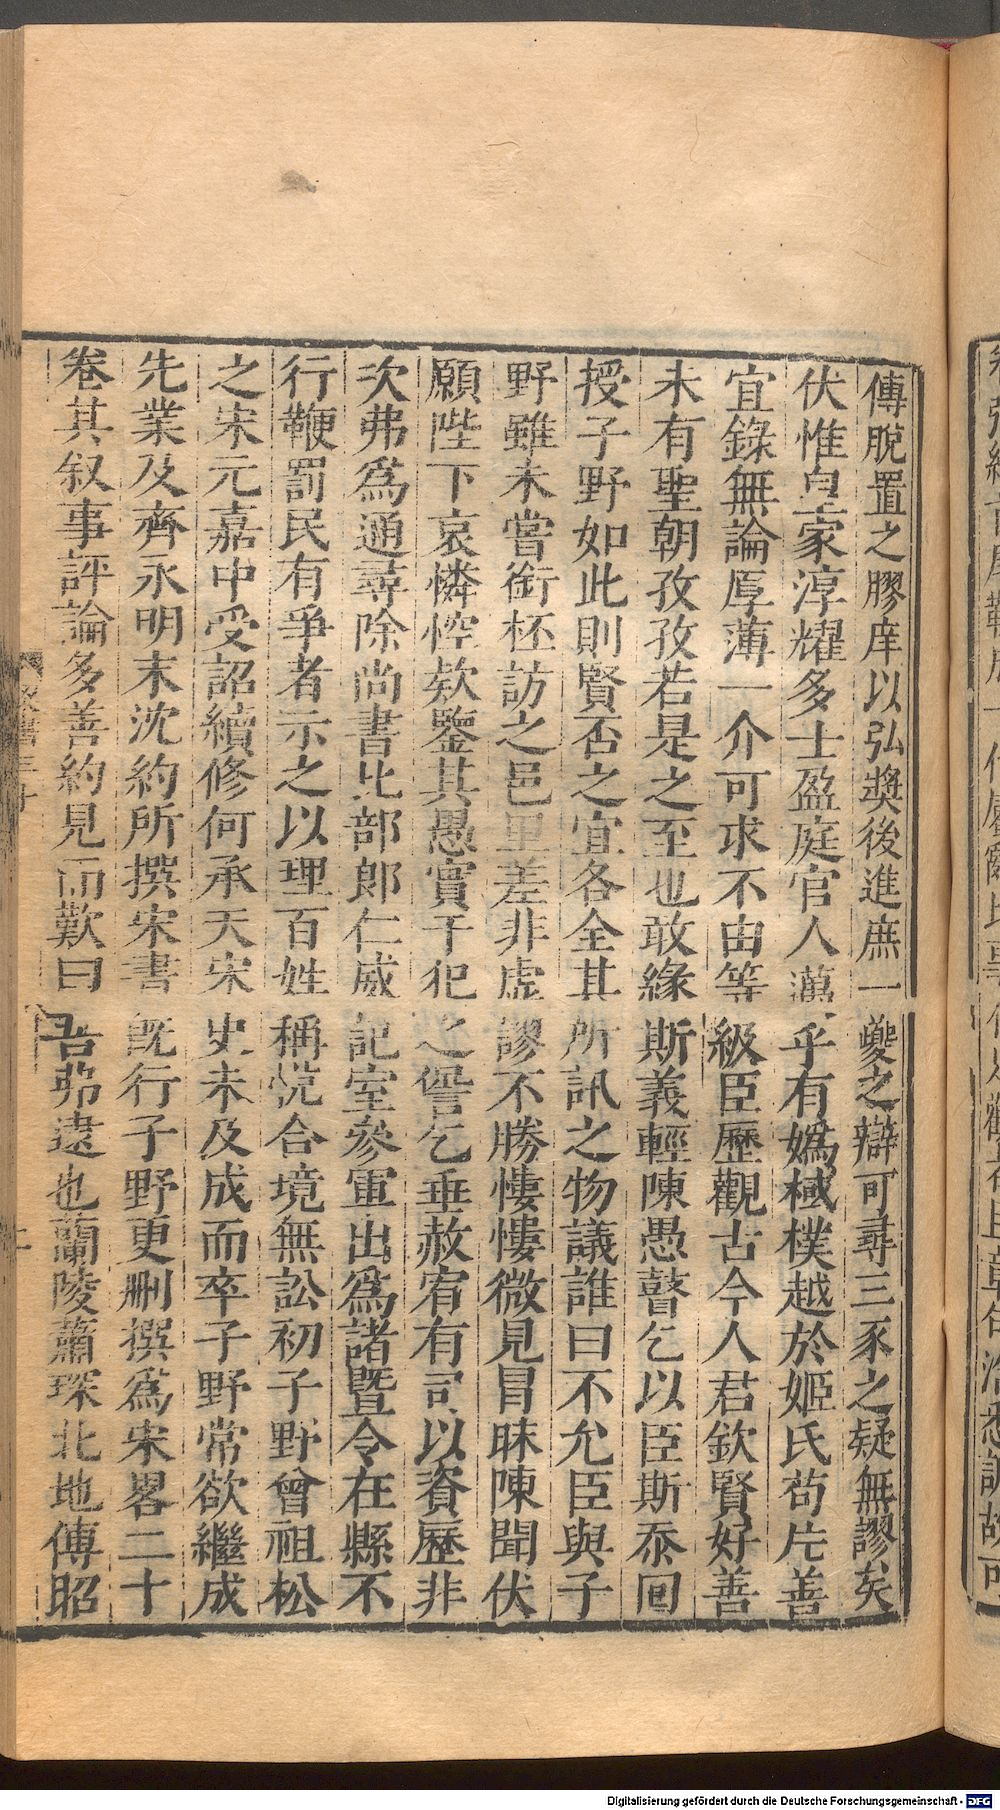 傳脫置之膠庠以弘奬後進庶一夔之辯可尋三豕之疑無謬矣
伏惟皇家淳耀多士盈庭官人邁乎有嬀棫樸越於姬氏苟片善
宜錄無論厚薄一介可求不由等級臣歷觀古今人君欽賢好善
未有聖朝孜孜若是之至也敢緣斯義輕陳愚瞽乞以臣斯忝囘
授子野如此則賢否之宜各全其所訊之物議誰曰不允臣與子
野雖未嘗銜桮訪之邑里差非虛謬不勝慺慺微見冒昧陳聞伏
願陛下哀憐悾欵鑒其愚實干犯之諐乞垂赦宥有司以資歷非
次弗爲通尋除尚書比部郎仁威記室參軍出爲諸暨令在縣不
行鞭罰民有爭者示之以理百姓稱悅合境無訟初子野曾祖松
之宋元嘉中受詔續修何承天宋史未及成而卒子野常欲繼成
先業及齊永明末沈約所撰宋書旣行子野更刪撰爲宋畧二十
卷其叙事評論多善約見而歎曰吾弗逮也蘭陵蕭琛北地傅昭
Digitalisierung gefördert durch die Deutsche Forschungsgemeinschaft - DFG